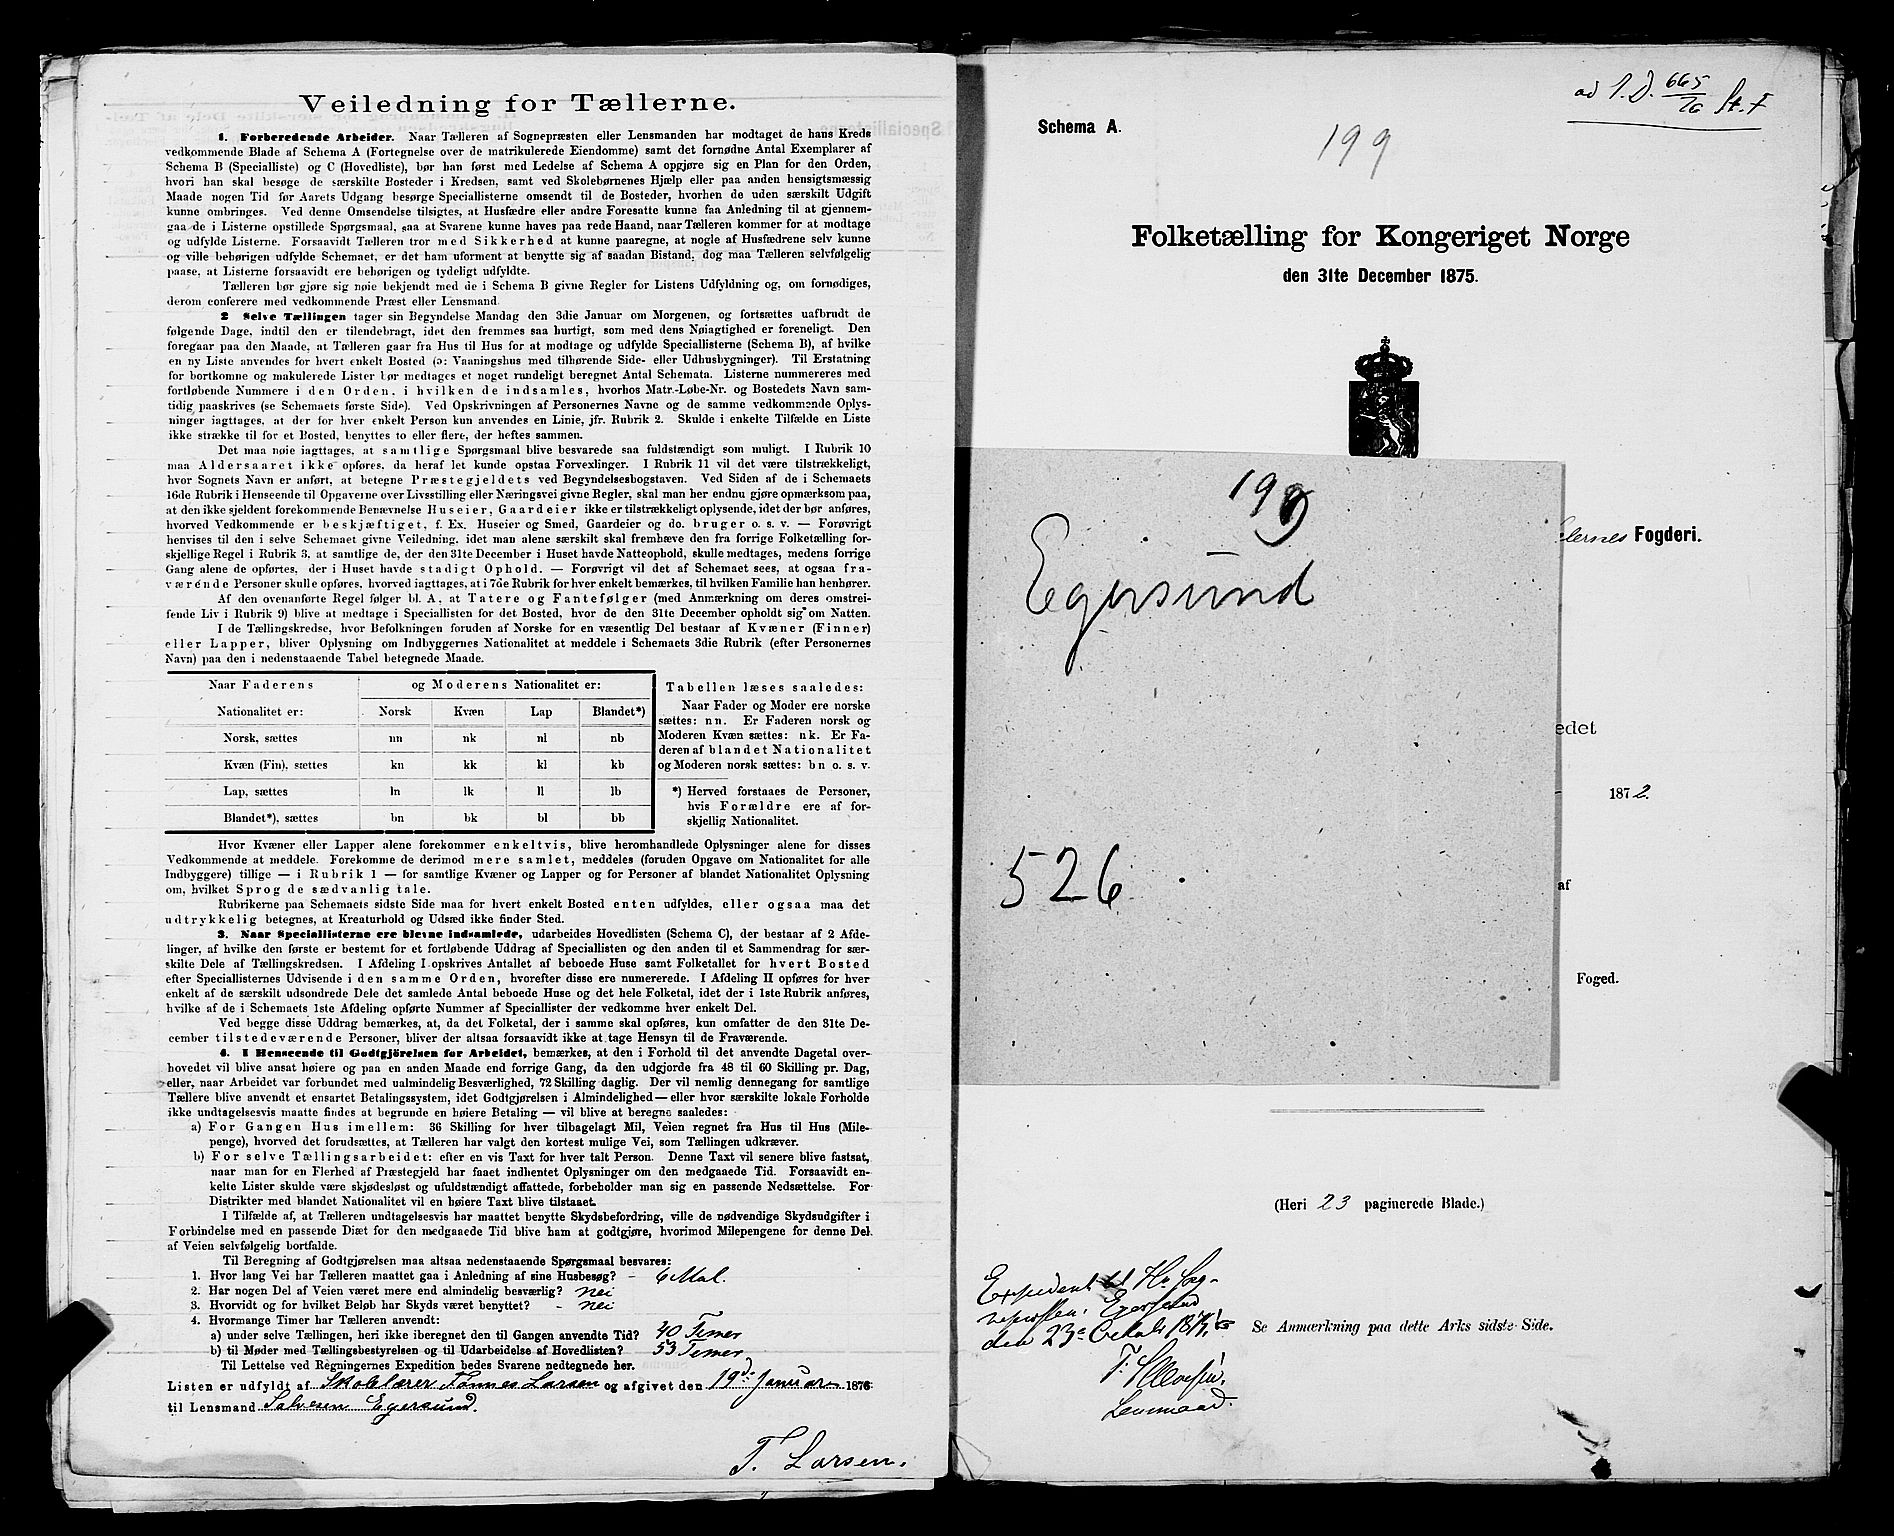 Veiledning for Tællerne.
1. Forberedende Arbeider. Naar Tælleren af Sognepræsten eller Lensmanden har modtaget de hans Kreds
vedkommende Blade af Schema A (Fortegnelse over de matrikulerede Eiendomme) samt det fornødne Antal Exemplarer af
Schema B (Specialliste) og C (Hovedliste), bør han først med Ledelse af Schema A opgjøre sig en Plan for den Orden,
hvori han skal besøge de særskilte Bosteder i Kredsen, samt ved Skolebørnenes Hjælp eller paa anden hensigtsmæssig
Maade nogen Tid før Aarets Udgang besørge Speciallisterne omsendt til de Bosteder, hvorhen de uden særskilt Udgift
kunne ombringes. Ved denne Omsendelse tilsigtes, at Husfædre eller andre Foresatte kunne faa Anledning til at gjennem-
gaa de i Listerne opstillede Spørgsmaal, saa at Svarene kunne haves paa rede Haand, naar Tælleren kommer for at modtage
og udfylde Listerne. Forsaavidt Tælleren tror med Sikkerhed at kunne paaregne, at nogle af Husfædrene selv kunne
og ville behørigen udfylde Schemaet, er det ham uforment at benytte sig af saadan Bistand, dog maa Tælleren selvfølgelig
paase, at Listerne forsaavidt ere behørigen og tydeligt udfyldte.
Tælleren bør gjøre sig nøie bekjendt med de i Schema B givne Regler for Listens Udfyldning og, om fornødiges,
derom conferere med vedkommende Præst eller Lensmand.
2 Selve Tællingen tager sin Begyndelse Mandag den 3die Januar om Morgenen, og fortsættes uafbrudt de
følgende Dage, indtil den er tilendebragt, idet den fremmes saa hurtigt, som med dens Nøiagtighed er foreneligt. Den
foregaar paa den Maade, at Tælleren gaar fra Hus til Hus for at modtage og udfylde Speciallisterne (Schema B), af hvilke
en ny Liste anvendes for hvert enkelt Bosted (ɔ: Vaaningshus med tilhørende Side- eller Udhusbygninger). Til Erstatning
for bortkomne og makulerede Lister bør medtages et noget rundeligt beregnet Antal Schemata. Listerne nummereres med
fortløbende Nummere i den Orden, i hvilken de indsamles, hvorhos Matr.-Løbe-Nr. og Bostedets Navn sam-
tidig paaskrives (se Schemaets første Side). Ved Opskrivningen af Personernes Navne og de samme vedkommende Oplys-
ninger iagttages, at der for hver enkelt Person kun anvendes en Linie, jfr. Rubrik 2. Skulde i enkelte Tilfælde en Liste
ikke strække til for et Bosted, benyttes to eller flere, der heftes sammen.
Det maa nøie iagttages, at samtlige Spørgsmaal blive besvarede saa fuldstændigt som muligt. I Rubrik 10
maa Aldersaaret ikke opføres, da heraf let kunde opstaa Forvexlinger. I Rubrik 11 vil det være tilstrækkeligt,
hvor Sognets Navn er anført, at betegne Præstegjeldets ved Begyndelsesbogstaven. Ved Siden af de i Schemaets
16de Rubrik i Henseende til Opgaverne over Livsstilling eller Næringsvei givne Regler, skal man her endnu gjøre opmærksom paa,
at den ikke sjeldent forekommende Benævnelse Huseier, Gaardeier ikke er tilstrækkeligt oplysende, idet der bør anføres,
hvorved Vedkommende er beskjæftiget, f. Ex. Huseier og Smed, Gaardeier og do. bruger o. s. v. — Forøvrigt
henvises til den i selve Schemaet givne Veiledning, idet man alene særskilt skal fremhæve den fra forrige Folketælling for-
skjellige Regel i Rubrik 3. at samtlige de, der den 31te December i Huset havde Natteophold, skulle medtages, medens forrige
Gang alene de opførtes, der i Huset havde stadigt Ophold. — Forøvrigt vil det af Schemaet sees, at ogsaa fra-
værende Personer skulle opføres, hvorved iagttages, at i 7de Rubrik for hver enkelt bemærkes, til hvilken Familie han henhører.
Af den ovenanførte Regel følger bl. A. at Tatere og Fantefølger (med Anmærkning om deres omstrei-
fende Liv i Rubrik 9) blive at medtage i Speciallisten for det Bosted, hvor de den 31te December opholdt sig om Natten.
I de Tællingskredse, hvor Befolkningen foruden af Norske for en væsentlig Del bestaar af Kvæner (Finner)
eller Lapper, bliver Oplysning om Indbyggernes Nationalitet at meddele i Schemaets 3die Rubrik (efter Personernes
Navn) paa den i nedenstaaende Tabel betegnede Maade.
Naar Faderens og Moderens Nationalitet er:
Nationalitet er: Norsk Kvæn Lap Blandet*)
Norsk, sættes nn nk nl nb
Kvæn (Fin), sættes kn kk kl kb
Lap, sættes ln lk ll lb
Blandet*), sættes bn bk bl bb
Tabellen læses saaledes:
Naar Fader og Moder ere norske
sættes: nn. Er Faderen norsk og
Moderen Kvæn sættes: nk. Er Fa-
deren af blandet Nationalitet
og Moderen norsk sættes: bn o. s. v.
*) Herved forstaaes de Personer,
hvis Forældre ere af for-
skjellig Nationalitet.
Hvor Kvæner eller Lapper alene forekommer enkeltvis, blive heromhandlede Oplysninger alene for disses
Vedkommende at meddele. Forekomme de derimod mere samlet, meddeles (foruden Opgave om Nationalitet for alle
Indbyggere) tillige — i Rubrik 1 — for samtlige Kvæner og Lapper og for Personer af blandet Nationalitet Oplysning
om, hvilket Sprog de sædvanlig tale.
Rubrikerne paa Schemaets sidste Side maa for hvert enkelt Bosted enten udfyldes, eller ogsaa maa det
udtrykkelig betegnes, at Kreaturhold og Udsæd ikke finder Sted.
3. Naar Speciallisterne ere blevne indsamlede, udarbeides Hovedlisten (Schema C), der bestaar af 2 Afde-
linger, af hvilke den første er bestemt for et fortløbende Uddrag af Speciallisten og den anden til et Sammendrag for sær-
skilte Dele af Tællingskredsen. I Afdeling I opskrives Antallet af beboede Huse samt Folketallet for hvert Bosted
efter Speciallisternes Udvisende i den samme Orden, hvorefter disse ere numererede. I Afdeling II opføres for hver
enkelt af de særskilt udsondrede Dele det samlede Antal beboede Huse og det hele Folketal, idet der i 1ste Rubrik anføres,
hvilke af de i Schemaets 1ste Afdeling opførte Nummer af Speciallister der vedkomme hver enkelt Del.
Ved begge disse Uddrag bemærkes, at, da det Folketal, der i samme skal opføres, kun omfatter de den 31te De-
cember tilstedeværende Personer, bliver der altsaa forsaavidt ikke at tage Hensyn til de Fraværende.
4. I Henseende til Godtgjörelsen for Arbeidet, bemærkes, at den i Forhold til det anvendte Dagetal over-
hovedet vil blive ansat høiere og paa en anden Maade end forrige Gang, da den udgjorde fra 48 til 60 Skilling pr. Dag,
eller, naar Arbeidet var forbundet med ualmindelig Besværlighed, 72 Skilling daglig. Der vil nemlig dennegang for samtlige
Tællere blive anvendt et ensartet Betalingssystem, idet Godtgjørelsen i Almindelighed — eller hvor særskilte lokale Forholde
ikke undtagelsesvis maatte findes at begrunde en høiere Betaling — vil blive at beregne saaledes:
a) For Gangen Hus imellem: 36 Skilling for hver tilbagelagt Mil, Veien regnet fra Hus til Hus (Mile-
penge), hvorved det forudsættes, at Tælleren har valgt den kortest mulige Vei, som Tællingen udkræver.
b) For selve Tællingsarbeidet: efter en vis Taxt for hver talt Person. Denne Taxt vil senere blive fastsat,
naar man for en Flerhed af Præstegjeld har faaet indhentet Oplysninger om den medgaaede Tid. Forsaavidt en-
kelte Lister skulde være skjødesløst og ufuldstændigt affattede, forbeholder man sig en passende Nedsættelse. For
Distrikter med blandet Nationalitet vil en høiere Taxt blive tilstaaet.
I Tilfælde af, at Tælleren undtagelsesvis har maattet benytte Skydsbefordring, ville de nødvendige Skydsudgifter i
Forbindelse med en passende Diæt for den medgaaede Tid blive ham at godtgjøre, hvorimod Milepengene for denne Del
af Veien selvfølgelig bortfalde.
Til Beregning af Godtgjørelsen maa altsaa nedenstaaende Spørgsmaal besvares:
1. Hvor lang Vei har Tælleren maattet gaa i Anledning af sine Husbesøg? - 6 Mil.
2. Har nogen Del af Veien været mere end almindelig besværlig? nei
3. Hvorvidt og for hvilket Beløb har Skyds været benyttet? - nei
4. Hvormange Timer har Tælleren anvendt:
a) under selve Tællingen, heri ikke iberegnet den til Gangen anvendte Tid? 40 Timer
b) til Møder med Tællingsbestyrelsen og til Udarbeidelse af Hovedlisten? 53 Timer
Til Lettelse ved Regningernes Expedition bedes Svarene nedtegnede her.
Listen er udfyldt af Skolelærer Tønnes Larsen og afgivet den 19d: Januar 1876
til Lensmand Salvesen Egersund.
T. Larsen.
ad J.D. 665/76 St. F
Schema A.
199
Folketælling for Kongeriget Norge
den 31te December 1875.
199
Egersund
526
elernes Fogderi.
edet
1872.
af
Foged.
(Heri 23 paginerede Blade.)
Se Anmærkning paa dette Arks sidste Side.
Lensmand.